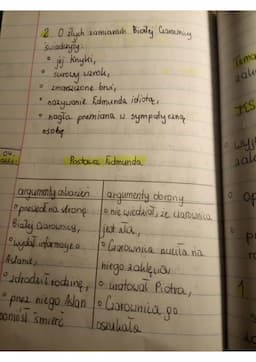 2. O złych zamiarach Białej Czarownicy
świadczyły:
• jej krzyki,
• surowy wzrok,
• zmarszczone brwi,
• nazywanie Edmunda idiotą,
• nagła przemiana w sympatyczną
osobę
Postawa Edmunda
argumenty oskarżeń
• przeszedł na stronę
Białej Czarownicy,
• wydał informacje o
Aslanie,
• zdradził rodzinę,
• przez niego Aslan
poniósł śmierć
argumenty obrony
• nie wiedział, że czarownica
jest zła,
• Czarownica rzuciła na
niego zaklęcia
• uratował Piotra,
• Czarownica go
oszukała